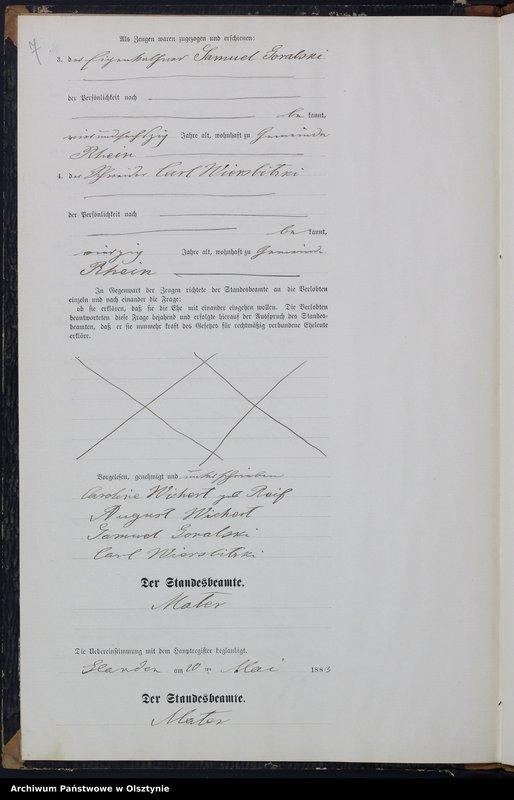 7
Als Zeugen waren zugezogen und erschienen:
3. der Eigenkäthner Samuel Goralski
der Persönlichkeit nach
be kannt,
vierundsechszig Jahre alt, wohnhaft zu Gemeinde
Rhein
4. der Schneider Carl Wierslitzki
der Persönlichkeit nach
be kannt,
vierzig Jahre alt, wohnhaft zu Gemeinde
Rhein
In Gegenwart der Zeugen richtete der Standesbeamte an die Verlobten
einzeln und nach einander die Frage:
ob sie erklären, daß sie die Ehe mit einander eingehen wollen. Die Verlobten
beantworteten diese Frage bejahend und erfolgte hierauf der Ausspruch des Standes-
beamten, daß er sie nunmehr kraft des Gesetzes für rechtmäßig verbundene Eheleute
erkläre.
Vorgelesen, genehmigt und unterschrieben
Caroline Wichert geb Reif
August Wichert
Samuel Goralski
Carl Wierslitzki
Der Standesbeamte.
Mater
Die Uebereinstimmung mit dem Hauptregister beglaubigt.
am 20 ten Mai 1883
Der Standesbeamte.
Mater
Archiwum Państwowe w Olsztynie